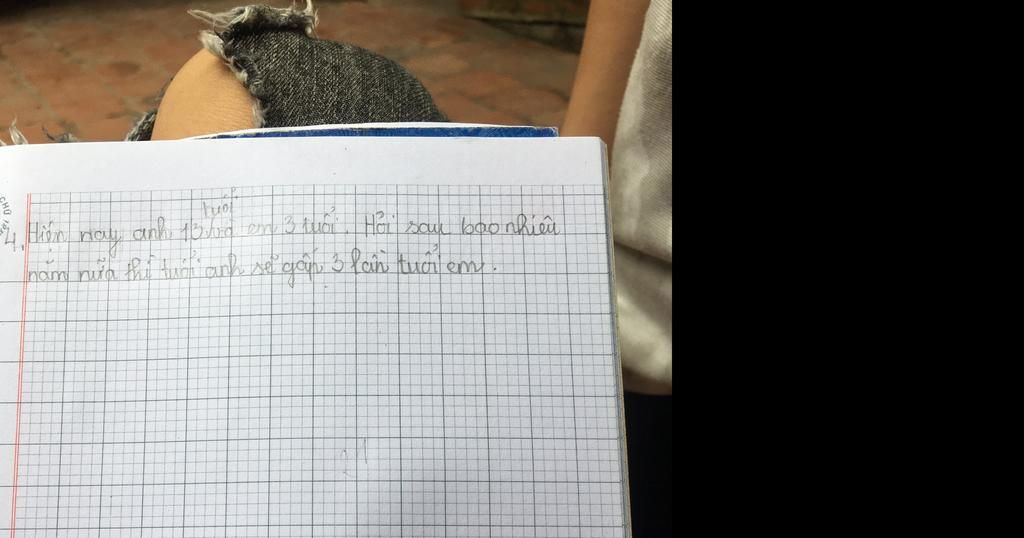 4. Hiện nay anh 13 tuổi và em 3 tuổi. Hỏi sau bao nhiêu
năm nữa thì tuổi anh sẽ gấp 3 lần tuổi em.